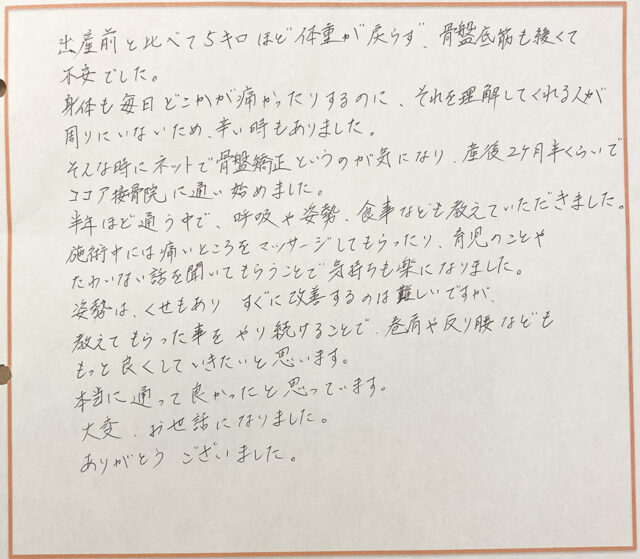 出産前と比べて5キロほど体重が戻らず、骨盤底筋も緩くて
不安でした。
身体も毎日どこかが痛かったりするのに、それを理解してくれる人が
周りにいないため、辛い時もありました。
そんな時にネットで骨盤矯正というのが気になり、産後2ケ月半くらいで
ココア接骨院に通い始めました。
半年ほど通う中で、呼吸や姿勢、食事なども教えていただきました。
施術中には痛いところをマッサージしてもらったり、育児のことや
たわいない話を聞いてもらうことで気持ちも楽になりました。
姿勢は、くせもあり すぐに改善するのは難しいですが、
教えてもらった事をやり続けることで、巻肩や反り腰なども
もっと良くしていきたいと思います。
本当に通って良かったと思っています。
大変、お世話になりました。
ありがとう ございました。